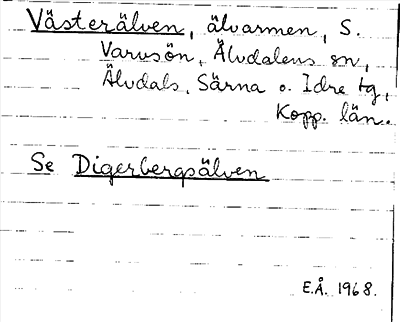 Västerälven, älvarmen, S.
Varusön, Älvdalens sn,
Älvdals, Särna o. Idre tg,
Kopp. län.
Se Digerbergsälven
E.Å. 1968.